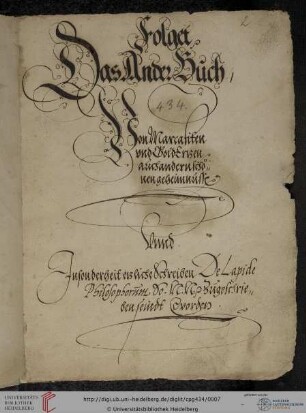 Folget
2
Das Ander Buch,
434.
Von Marcasiten
vnd Goldertzen
auch andern schö-
nen geheimnüssen
Vund
In sonderheit etzliche Schreiben De Lapide
Philosophorum, So N. N. Zugeschrie-
ben seindt worden
http://digi.ub.uni-heidelberg.de/diglit/cpg434/0007
© Universitätsbibliothek Heidelberg
UNIVERSITÄTS-
BIBLIOTHEK
HEIDELBERG